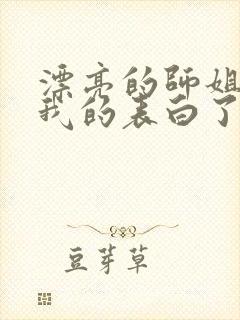 漂亮的师姐
我的表白了
豆芽草